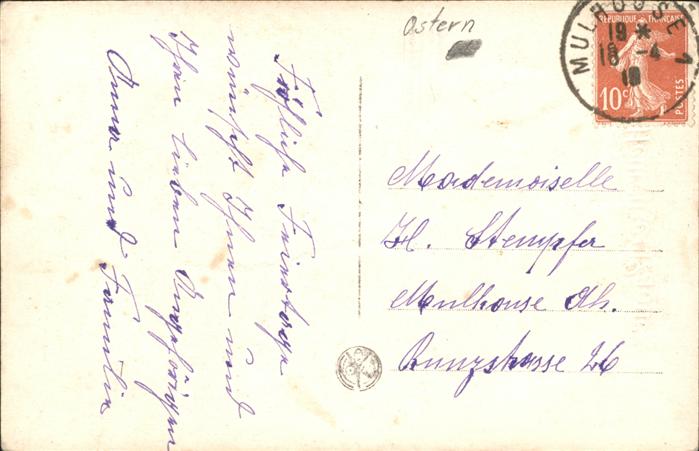 Ostern
Fröhliche Feiertage
wünscht Ihnen und
Ihren lieben Angehörigen
Anna und Familie
Mademoiselle
H. Stempfer
Mulhouse
26
MULHOUSE 1
19 *
18 -4
REPUBLIQUE FRANÇAISE
10c
POSTES